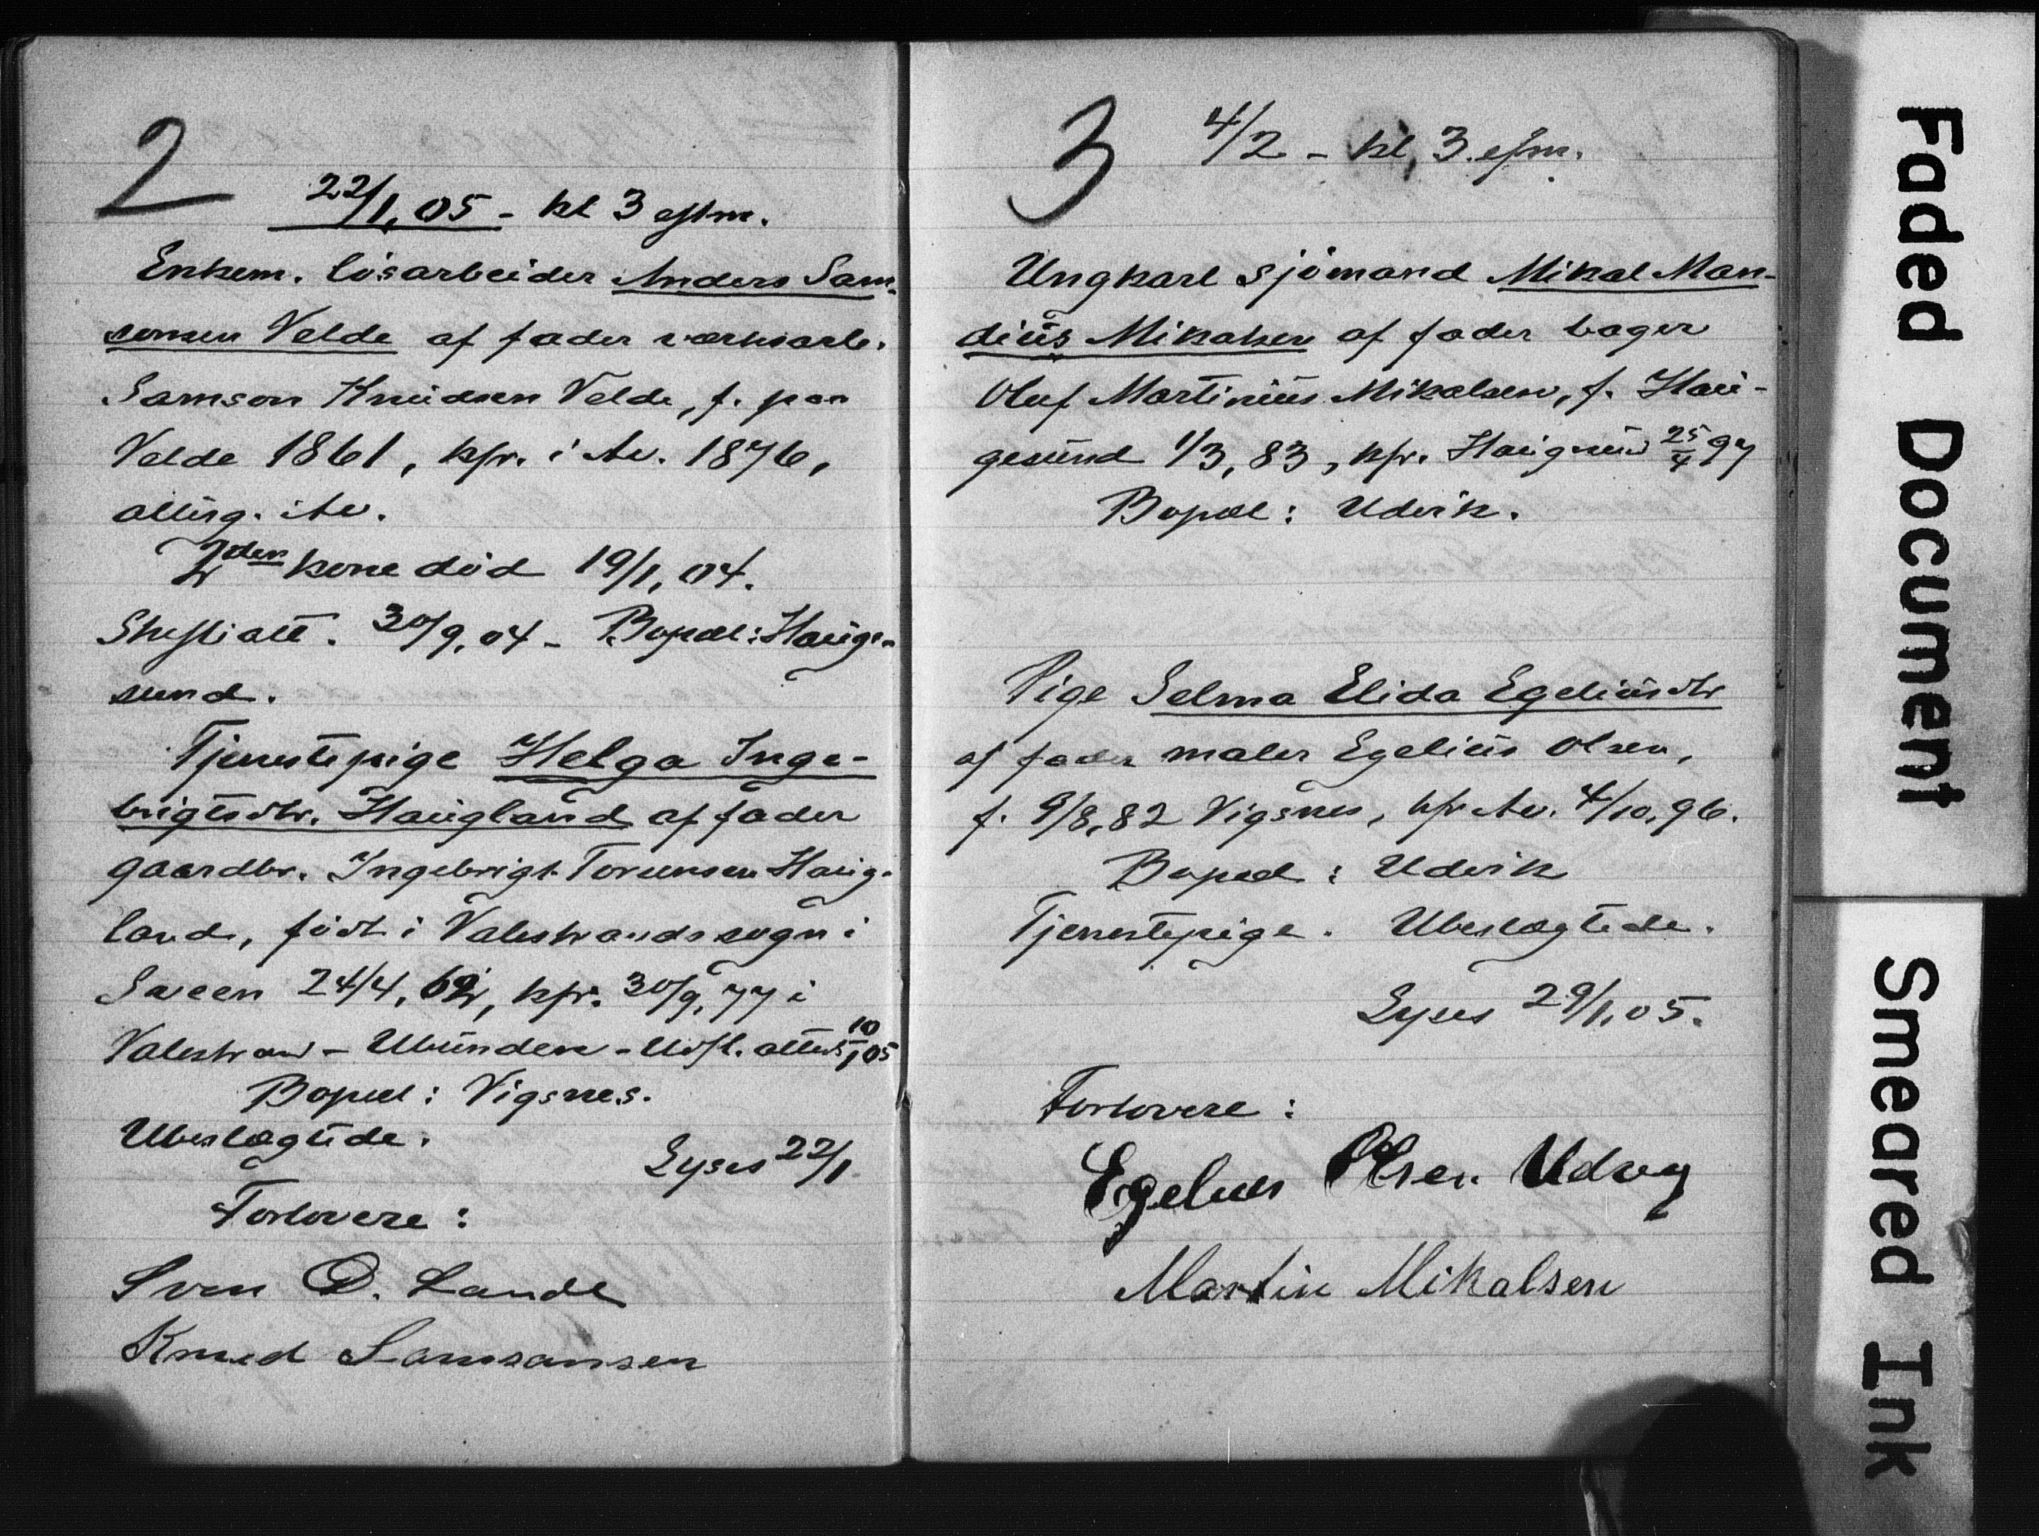 2
22/1, 05 - kl 3 eftm.
Enkem. lösarbeider Anders Sam-
sonsen Velde af fader værksarb.
Samson Knudsen Velde, f. paa
Velde 1861, kfr. i Av. 1876,
altisg. i Av.
2den kone död 19/1, 04.
Skifteatt. 30/9, 04 - Bopæl: Hauge-
sund.
Tjenestepige Helga Inge-
brigtsdtr. Haugland af fader
gaardbr. Ingebrigt Torunsen Haug-
land, födt i Valestrands sogn i
Sveen 24/4, 62, kfr. 30/9, 77 i
Valestrand - Ubunden - Udfl. attest 10/1 05
Bopæl: Vigsnes.
Ubeslægtede.
Lyses 22/1.
Forlovere:
Sven O. Lande
Knud Samsonsen
3
4/2 - kl, 3. efm.
Ungkarl Sjömand Mikal Man-
dius Mikalsen af fader bager
Oluf Martinius Mikalsen, f. Hau-
gesund 1/3, 83, kfr. Haugesund 25/4 97
Bopæl: Udvik.
Pige Selma Elida Egeliusdtr
af fader maler Egelius Olsen,
f. 9/8, 82 Vigsnes, kfr Av. 4/10, 96.
Bopæl: Udvik
Tjenestepige. Ubeslægtede.
Lyses 29/1, 05.
Forlovere:
Egelius Olsen Udvig
Martin Mikalsen
Faded Document
Smeared Ink